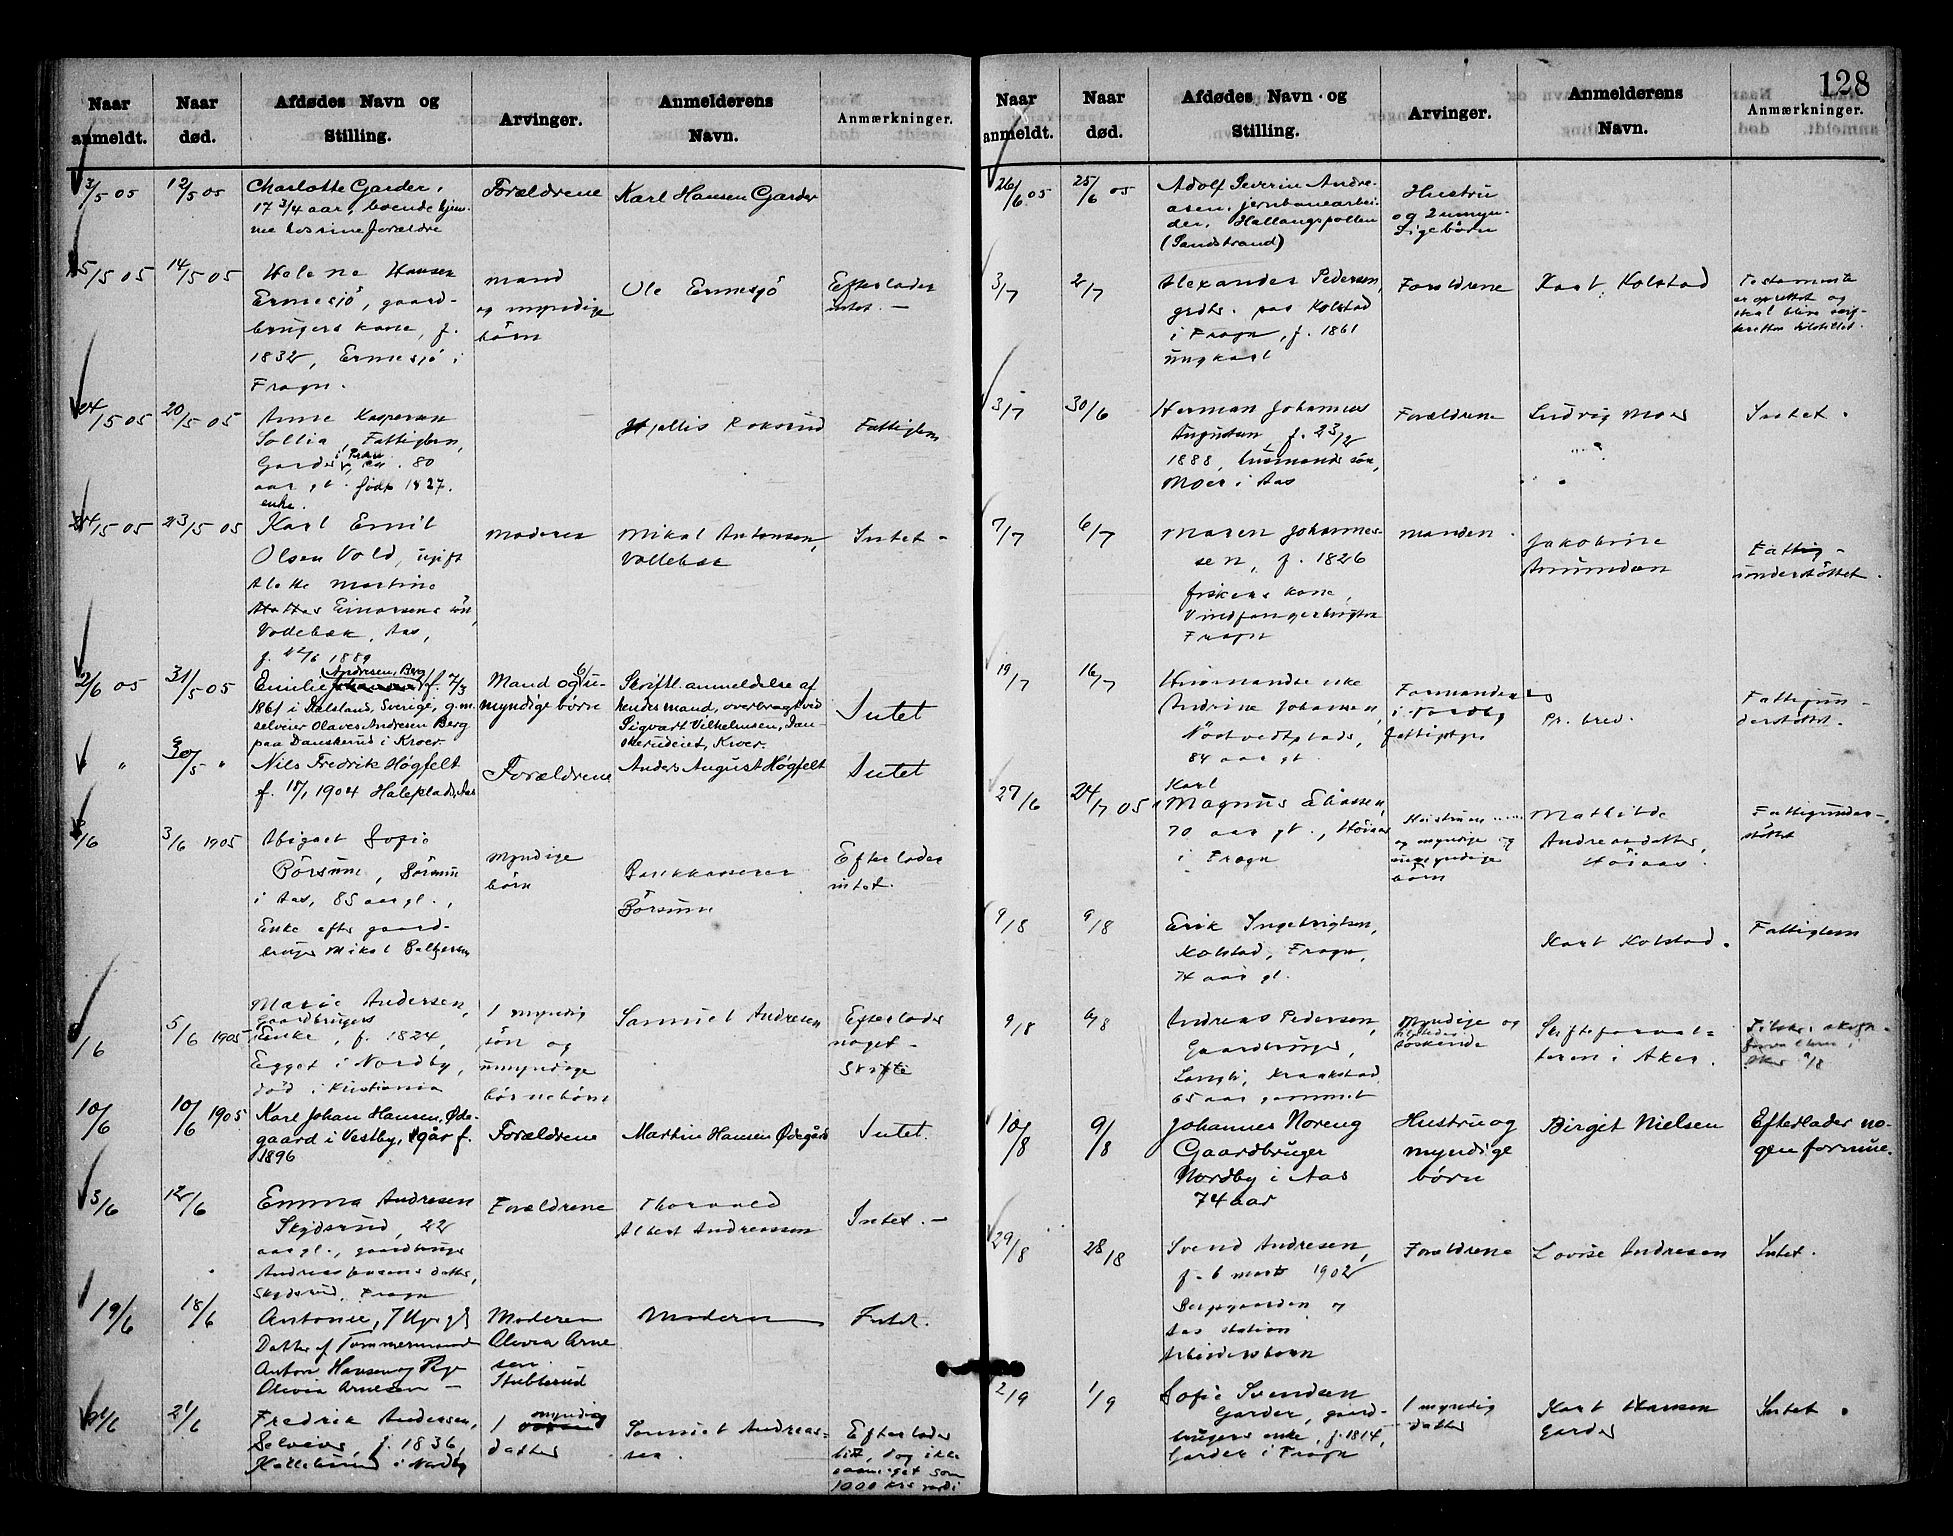 128
Naar anmeldt.
Naar død.
Afdødes Navn og Stilling.
Arvinger.
Anmelderens Navn.
Anmærkninger.
3/5 05
12/5 05
Charlotte Garder,
17 3/4 aar, boende hjem-
me hos sine forældre
Forældrene
Karl Hansen Garder
15/5 05
14/5 05
Helene Hansen
Ermesjö, gaard-
brugers kone, f.
1832, Ermesjö i
Frogn.
Mand
og myndige
börn
Ole Ermesjö
Efterlader
intet. —
24/5 05
20/5 05
Anne Kaspersen
Sollia, Fattiglem,
Garder i
80
aar gl. født 1827.
enke.
Fattiglem
24/5 05
23/5 05
Karl Emil
Olsen Vold, ugift
Alette Martine
Einarsens sön,
Vollebæk, Aas,
1889
Moderen
Mikal Antonsen,
Vollebæk
Intet —
2/6 05
31/5 05
Andresen, Berg
Emilie f. 7/3
1861 i Dalsland, Sverige, g.m.
selveier Olaves Andresen Berg
paa Danskerud i Kroer.
Mand og 6 u-
myndige börn
Skriftl. anmeldelse af
hendes mand, overbragt ved
Sigvart Vilhelmsen, Dan-
skerudeiet, Kroer.
Intet
"
30/5 "
Nils Fredrik Høgfelt
f. 18/1 1904 Haleplads, Aas
Forældrene
Anders August Høgfelt
Intet
3/6
3/6 1905
Abigael Sofie
Börsum, Börsum
i Aas, 85 aar gl.,
Enke efter gaard-
bruger Mikal
myndige
börn
Bankkasserer
Börsum
Efterlader
intet.
/6
5/6 1905
Marie Andersen,
Gaardbrugers
Enke, f. 1824,
Egget i Nordby,
död i Kristiania
1 myndig
sön og
umyndige
börnebörn
Samuel Andresen
Efterlader
noget —
Skifte
10/6
10/6 1905
Karl Johan Hansen, Øde-
gaard i Vestby, f.
1896
Forældrene
Martin Hansen Ødegård
Intet.
13/6
12/6
Emma Andresen
Skydsrud, 22
aar gl., gaardbruger
Andreas Jensens datter,
Skydsrud, Frogn
Forældrene
Thorvald
Albert Andreassen
Intet. —
19/6
18/6
Antonie, 7 Uger gl
Datter af Tømmermand
Anton Hansen og Pige
Olivia Arnesen —
Moderen
Olivia Arne
sen
Stubberud
Moderen
Intet.
21/6
21/6
Fredrik Andersen,
Selveier, f. 1836,
i Nordby
1 myndig
datter
Samuel Andreas-
sen.
Efterlader
litt, dog ikke
saameget som
1000 krs værdi
Naar anmeldt.
Naar død.
Afdødes Navn og Stilling.
Arvinger.
Anmelderens Navn.
Anmærkninger.
26/6 05
25/6 05
Adolf Severin Andre-
asen, jernbanearbei-
der, Hallangspollen
(Sandstrand)
Hustru
og 2 umyn-
dige börn
3/7
2/7
Alexander Pedersen,
grdbr. paa Kolstad
i Frogn, f. 1861
ungkarl
Forældrene
Karl Kolstad
Testamente
er oprettet og
skal blive skif-
teretten tilstillet.
3/7
30/6
Herman Johannes
Augustsen, f. 23/2
1888, husmands sön,
Moer i Aas
Forældrene
Ludvig Moer
Intet.
7/7
6/7
Maren Johannes-
sen, f. 1826
fiskers kone,
Frogn
Manden.
Jakobine
Amundsen
Fattig-
understöttet.
19/7
16/7
Husmands enke
Andrine Johansen,
Nöstvedtplads,
84 aar gl.
Formanden
i Nordby
Pr. brev.
Fattigun-
derstöttet.
27/6
24/7 05
Karl
Magnus Eliassen,
70 aar gl., Höiaas
i Frogn
Hustruen
og myndige og
umyndige
börn
Mathilde
Andreasdatter,
Höiaas.
Fattigunder-
stöttet
9/8
9/8
Erik Ingebrigtsen,
Kolstad, Frogn,
74 aar gl.
Karl Kolstad.
Fattiglem
9/8
6/8
Andreas Pedersen,
Gaardbruger,
Langli, Kraakstad
65 aar gammel
Myndige og
söskende
Skifteforval-
teren i Aker.
9/8
10/8
9/8
Johannes Noreng
Gaardbruger
Nordby i Aas
74 aar
Hustru og
myndige
børn
Birgit Nielsen
Efterlader no-
gen formue.
29/8
28/8
Svend Andresen,
f. 6 marts 1902
Bergsgaarden og
Aas station
Arbeidersbarn
Forældrene
Lovise Andresen
Intet.
2/9
1/9
Sofie Svendsen
Garder, gaard-
brugers enke, f. 1814,
Garder i Frogn
1 myndig
datter
Karl Hansen
Garder
Intet.